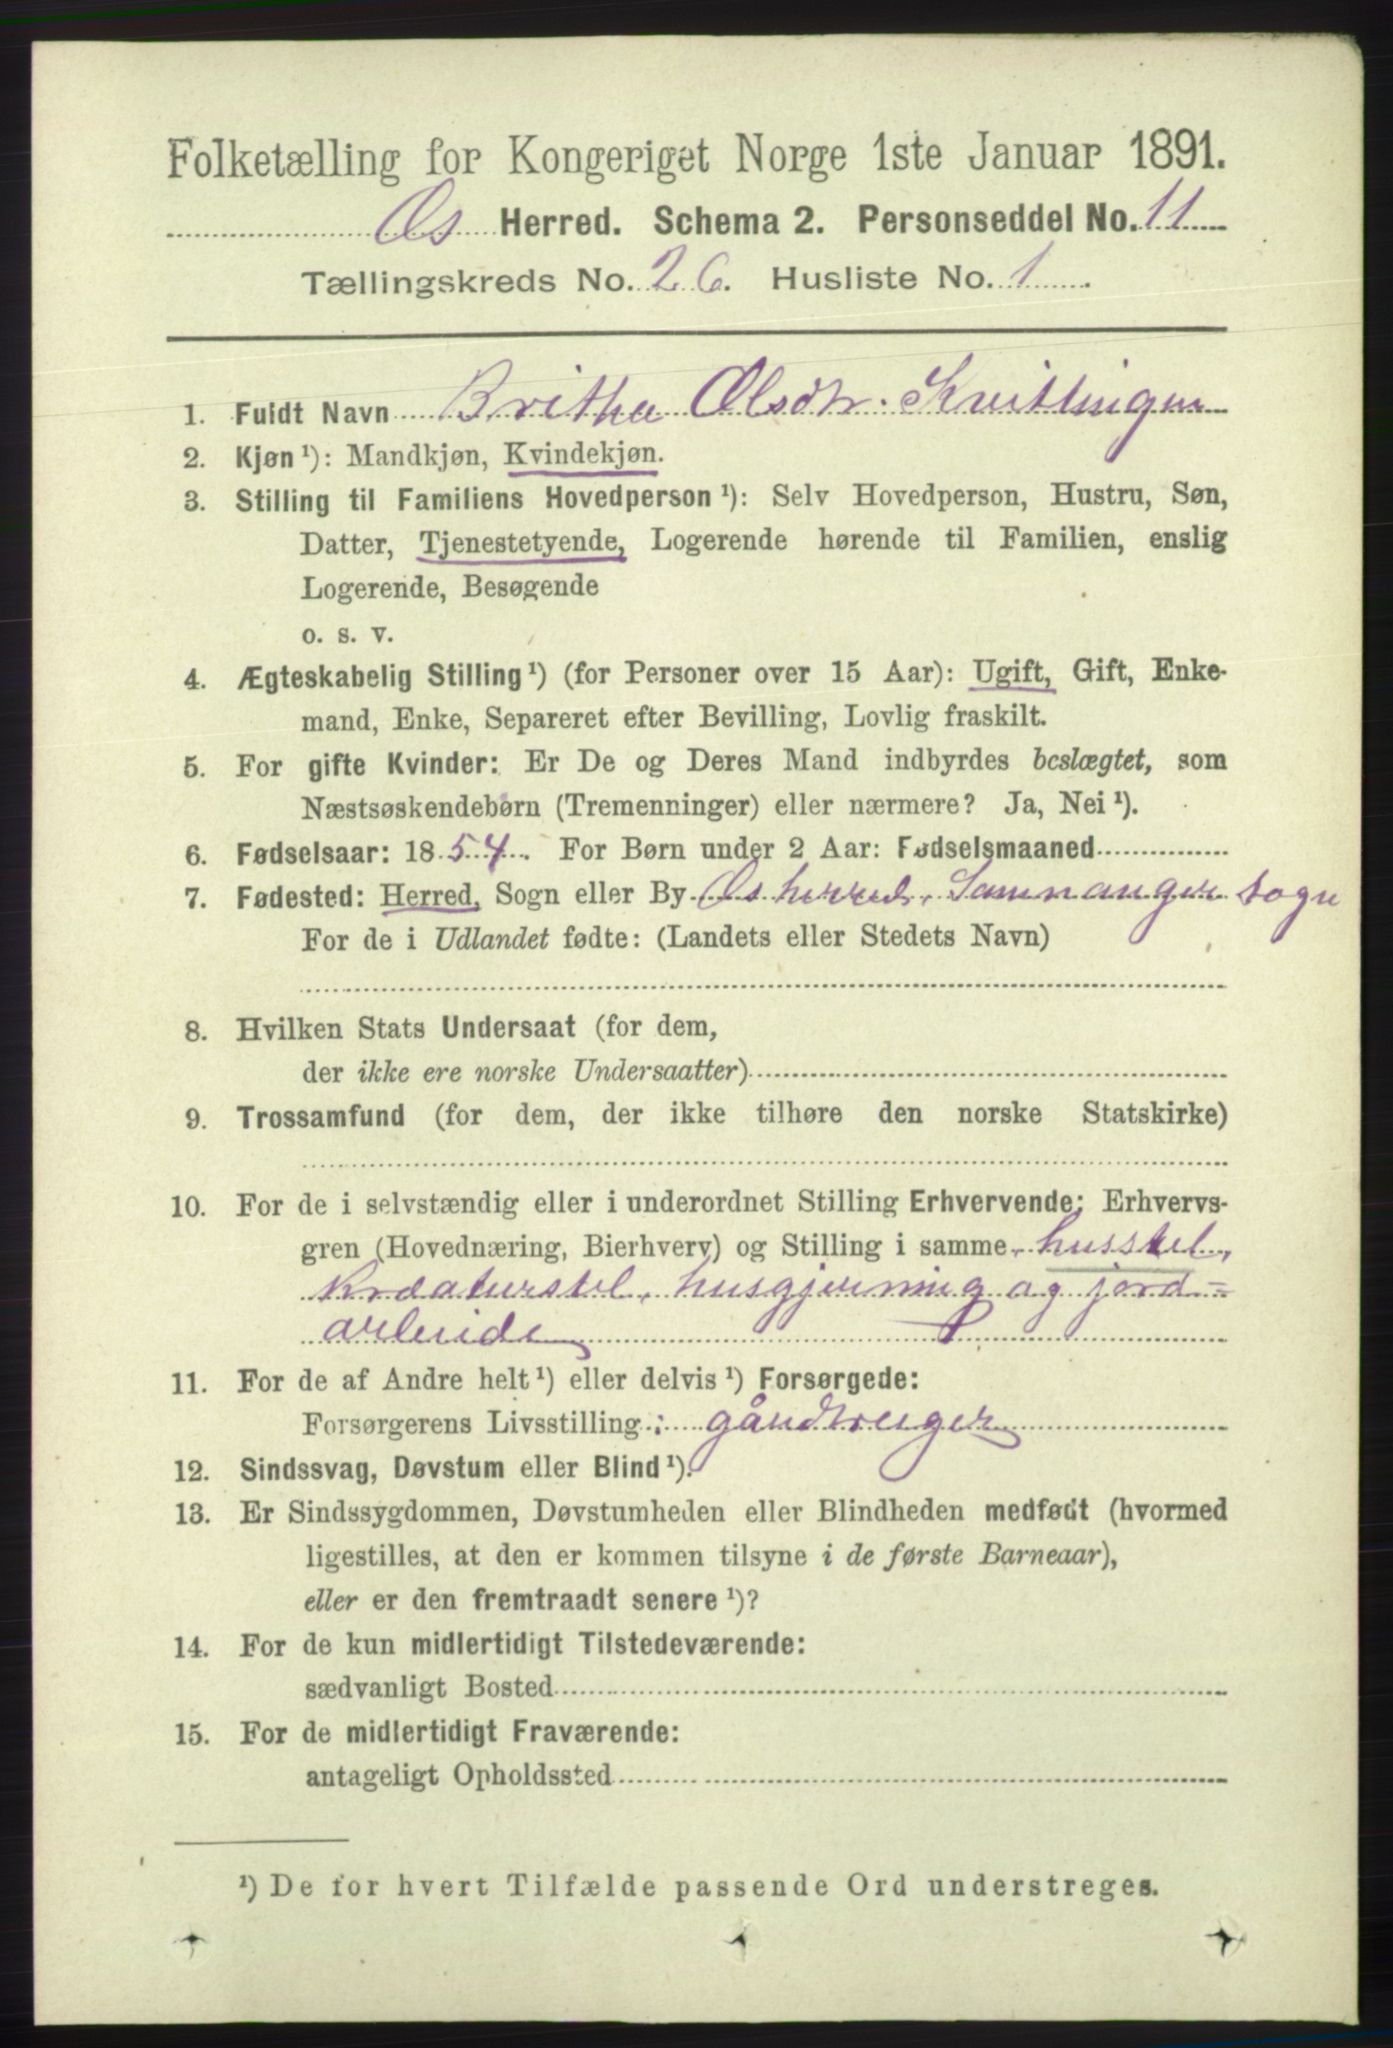 Folketælling for Kongeriget Norge 1ste Januar 1891.
Os Herred. Schema 2. Personseddel No. 11
Tællingskreds No. 26. Husliste No. 1.
1. Fuldt Navn Britha Olsdtr. Kvitlingen
2. Kjøn ¹): Mandkjøn, Kvindekjøn.
3. Stilling til Familiens Hovedperson ¹): Selv Hovedperson, Hustru, Søn,
Datter, Tjenestetyende, Logerende hørende til Familien, enslig
Logerende, Besøgende
o. s. v.
4. Ægteskabelig Stilling ¹) (for Personer over 15 Aar): Ugift, Gift, Enke-
mand, Enke, Separeret efter Bevilling, Lovlig fraskilt.
5. For gifte Kvinder: Er De og Deres Mand indbyrdes beslægtet, som
Næstsøskendebørn (Tremenninger) eller nærmere? Ja, Nei ¹).
6. Fødselsaar: 1854. For Børn under 2 Aar: Fødselsmaaned
7. Fødested: Herred, Sogn eller By Os herred, Samnanger sogn
For de i Udlandet fødte: (Landets eller Stedets Navn)
8. Hvilken Stats Undersaat (for dem,
der ikke ere norske Undersaatter)
9. Trossamfund (for dem, der ikke tilhøre den norske Statskirke)
10. For de i selvstændig eller i underordnet Stilling Erhvervende: Erhvervs-
gren (Hovednæring, Bierhverv) og Stilling i samme husstel,
Kræaturstel, husgjerning og jord=
arbeide
11. For de af Andre helt ¹) eller delvis ¹) Forsørgede:
Forsørgerens Livsstilling: gårdbruger
12. Sindssvag, Døvstum eller Blind ¹).
13. Er Sindssygdommen, Døvstumheden eller Blindheden medfødt (hvormed
ligestilles, at den er kommen tilsyne i de første Barneaar),
eller er den fremtraadt senere ¹)?
14. For de kun midlertidigt Tilstedeværende:
sædvanligt Bosted
15. For de midlertidigt Fraværende:
antageligt Opholdssted
¹) De for hvert Tilfælde passende Ord understreges.